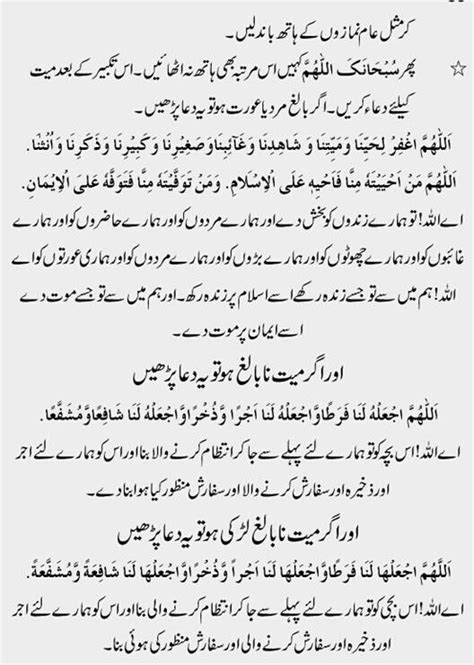 کر مثل عام نمازوں کے ہاتھ باندلیں۔
☆ پھر سُبْحَانَکَ اللّٰھُمَّ کہیں اس مرتبہ بھی ہاتھ نہ اٹھائیں۔ اس تکبیر کے بعد میت
کیلئے دعاء کریں۔ اگر بالغ مرد یا عورت ہو تو یہ دعا پڑھیں۔
اَللّٰھُمَّ اغْفِرْ لِحَیِّنَا وَمَیِّتِنَا وَ شَاھِدِنَا وَغَآئِبِنَا وَصَغِیْرِنَا وَکَبِیْرِنَا وَذَکَرِنَا وَ اُنْثٰنَا۔
اَللّٰھُمَّ مَنْ اَحْیَیْتَهٗ مِنَّا فَاَحْیِهٖ عَلَی الْاِسْلَامِ۔ وَمَنْ تَوَفَّیْتَهٗ مِنَّا فَتَوَفَّهٗ عَلَی الْاِیْمَانِ۔
اے اللہ! تو ہمارے زندوں کو بخش دے اور ہمارے مردوں کو اور ہمارے حاضروں کو اور ہمارے
غائبوں کو اور ہمارے چھوٹوں کو اور ہمارے بڑوں کو اور ہمارے مردوں کو اور ہماری عورتوں کو اے
اللہ! ہم میں سے تو جسے زندہ رکھے اسے اسلام پر زندہ رکھ۔ اور ہم میں سے تو جسے موت دے
اسے ایمان پر موت دے۔
اور اگر میت نابالغ ہو تو یہ دعا پڑھیں
اَللّٰھُمَّ اجْعَلْهُ لَنَا فَرَطًا وَّاجْعَلْهُ لَنَا اَجْرًا وَّذُخْرًا وَّاجْعَلْهُ لَنَا شَافِعًا وَّمُشَفَّعًا۔
اے اللہ! اس بچہ کو تو ہمارے لئے پہلے سے جا کر انتظام کرنے والا بنا اور اس کو ہمارے لئے اجر
اور ذخیرہ اور سفارش کرنے والا اور سفارش منظور کیا ہوا بنا دے۔
اور اگر میت نابالغ لڑکی ہو تو یہ دعا پڑھیں
اَللّٰھُمَّ اجْعَلْهَا لَنَا فَرَطًا وَّاجْعَلْهَا لَنَا اَجْراً وَّ ذُخْرًا وَّاجْعَلْهَا لَنَا شَافِعَةً وَّمُشَفَّعَةً۔
اے اللہ! اس بچی کو تو ہمارے لئے پہلے سے جا کر انتظام کرنے والی بنا اور اس کو ہمارے لئے اجر
اور ذخیرہ اور سفارش کرنے والی اور سفارش منظور کی ہوئی بنا۔